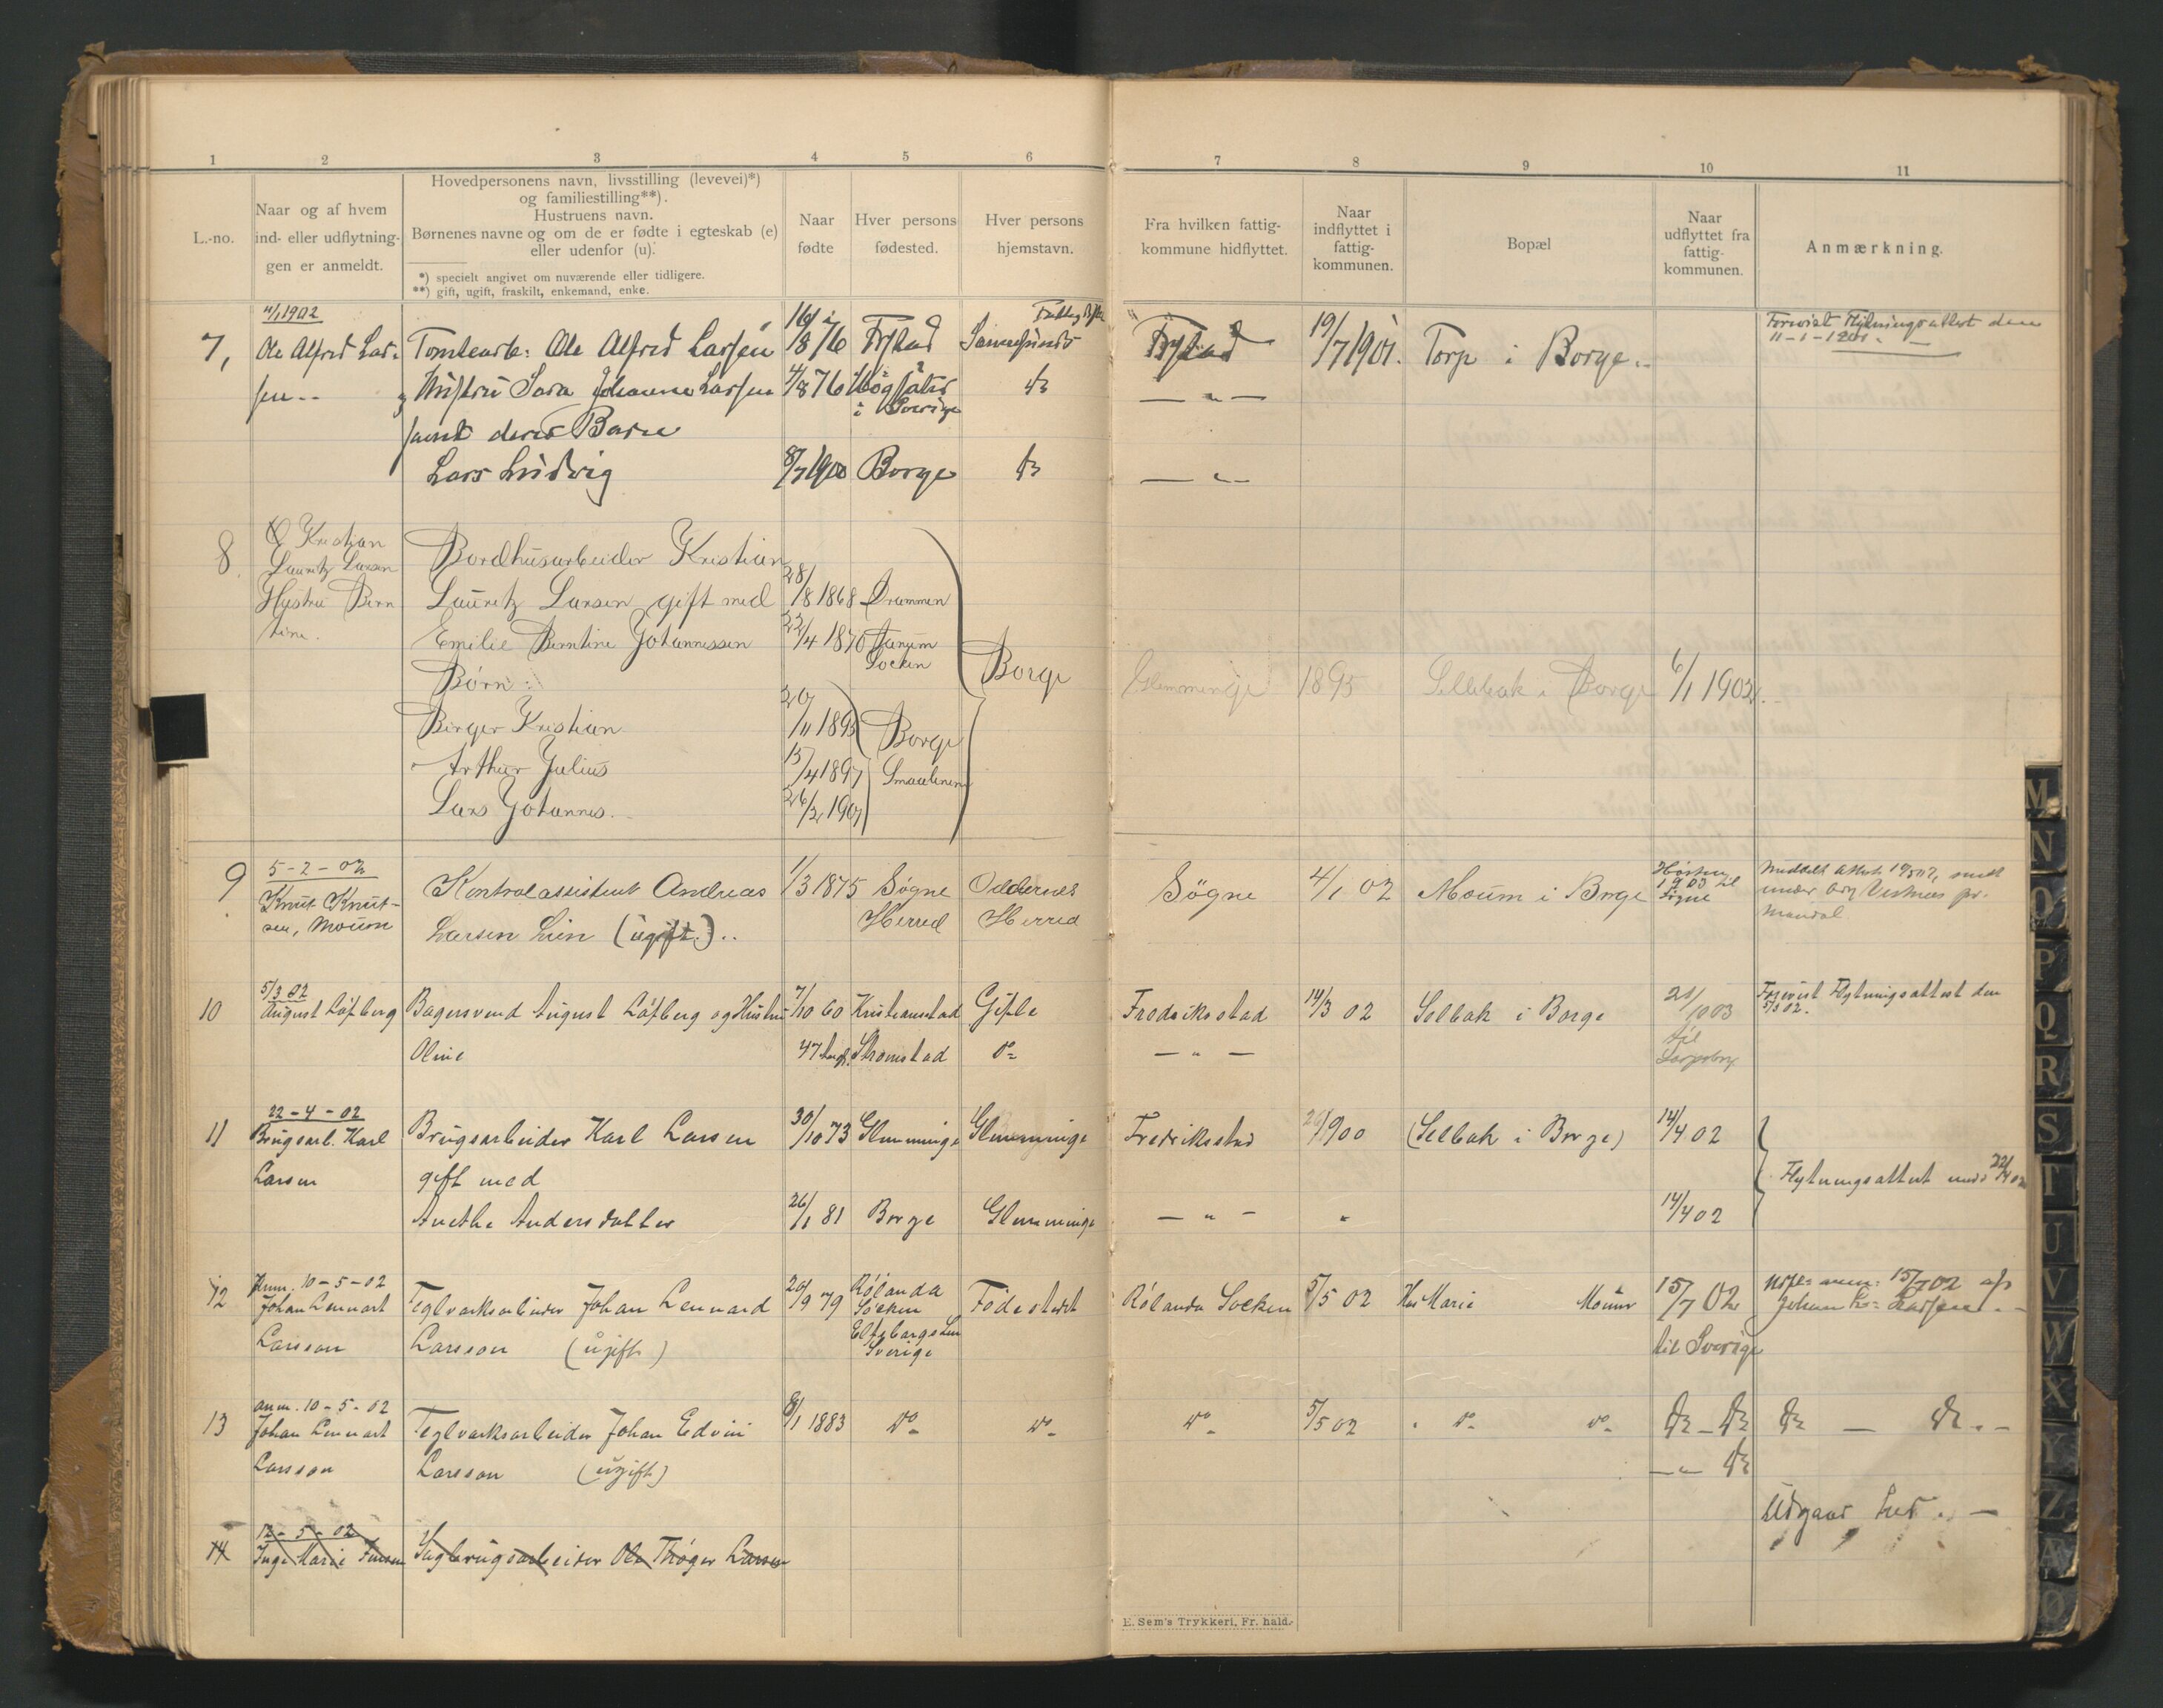 1 2 3 4 5 6 7 8 9 10 11
L.-no.
Naar og af hvem
ind- eller udflytning-
gen er anmeldt.
Hovedpersonens navn, livsstilling (levevei)*)
og familiestilling**).
Hustruens navn.
Børnenes navne og om de er fødte i egteskab (e)
eller udenfor (u).
*) specielt angivet om nuværende eller tidligere.
**) gift, ugift, fraskilt, enkemand, enke.
Naar
fødte
Hver persons
fødested.
Hver persons
hjemstavn.
Fra hvilken fattig-
kommune hidflyttet.
Naar
indflyttet i
fattig-
kommunen.
Bopæl
Naar
udflyttet fra
fattig-
kommunen.
Anmærkning.
11/1 1902
7, Ole Alfred Lar- Tomtearb: Ole Alfred Larsen 8/76 Frstad 19/7 1901. Torp i Borge
Forevist Flytningsattest den
11-1-1901.
sen Hustru Sara Johanne Larsen 4/8 76 Högsäter do — " —
i Sverige
samt deres Barn
Lars Ludvig 8/7 1900 Borge do — " —
8 Kristian
Lauritz Larsen Bordhusarbeider Kristian
Hustru Bern Lauritz Larsen gift med 28/8 1868 Drammen
tine. Emilie Berntine Johannessen 22/4 1870 Tanum
Socken
Børn: Borge Glemminge 1895 Sellebak i Borge 6/1 1902.
Birger Kristian 20/11 1895 Borge
Arthur Julius 15/4 1897 Smaalenene
Lars Johannes. 26/2 1901
9 5-2-02
Knut Knut- Kontrolassistent Andreas 1/3 1875 Søgne Oddernes Søgne 4/1 02 Moum i Borge Høsten
1903 til
Søgne
sen, Moum Larsen Lien (ugift) .. Herred Herred
Mandal
10 5/3 02
August Löfberg Bagersvend August Löfberg og Hustru 7/10 60 Kristianstad Gefle Fredriksstad 14/3 02 Selbak i Borge 1003
til
Sarpsborg
Forevist Flytningsattest den
5/3 02.
Oline 47 Strømstad do — " —
11 22-4-02
Brugsarb. Karl Brugsarbeider Karl Larsen 30/10 73 Glemminge Glemminge Fredriksstad 1900 (Selbak i Borge) 14/4 02
Larsen gift med Flytningsattest 22/4 02
Anethe Andersdatter 26/1 81 Borge Glemminge — " — " 14/4 02
12 Anm. 10-5-02
Johan Lennart Teglverksarbeider Johan Lennard 20/9 79 Rölanda
Socken
Elfsborgs Len
Sverige
Fødestedet Rölanda Socken 5/5 02 Hos Marie Moum 15/7 02
til Sverige
15/7 02 af
Johan L. Larsson
Larsson Larsson (ugift)
13 anm. 10-5-02
Johan Lennart Teglverksarbeider Johan Edvin 8/1 1883 do do do 5/5 02 do do do — do do — do
Larsson Larsson (ugift) — " — do
14 12-5-02
Inge Marie Sagbrugsarbeider Ole Thøger Larsen
Udgaar her
E. Sem's Trykkeri, Fr. hald.
M
N
O
P
Q
R
S
T
U
V
W
X
Y
Z
Æ
Ø